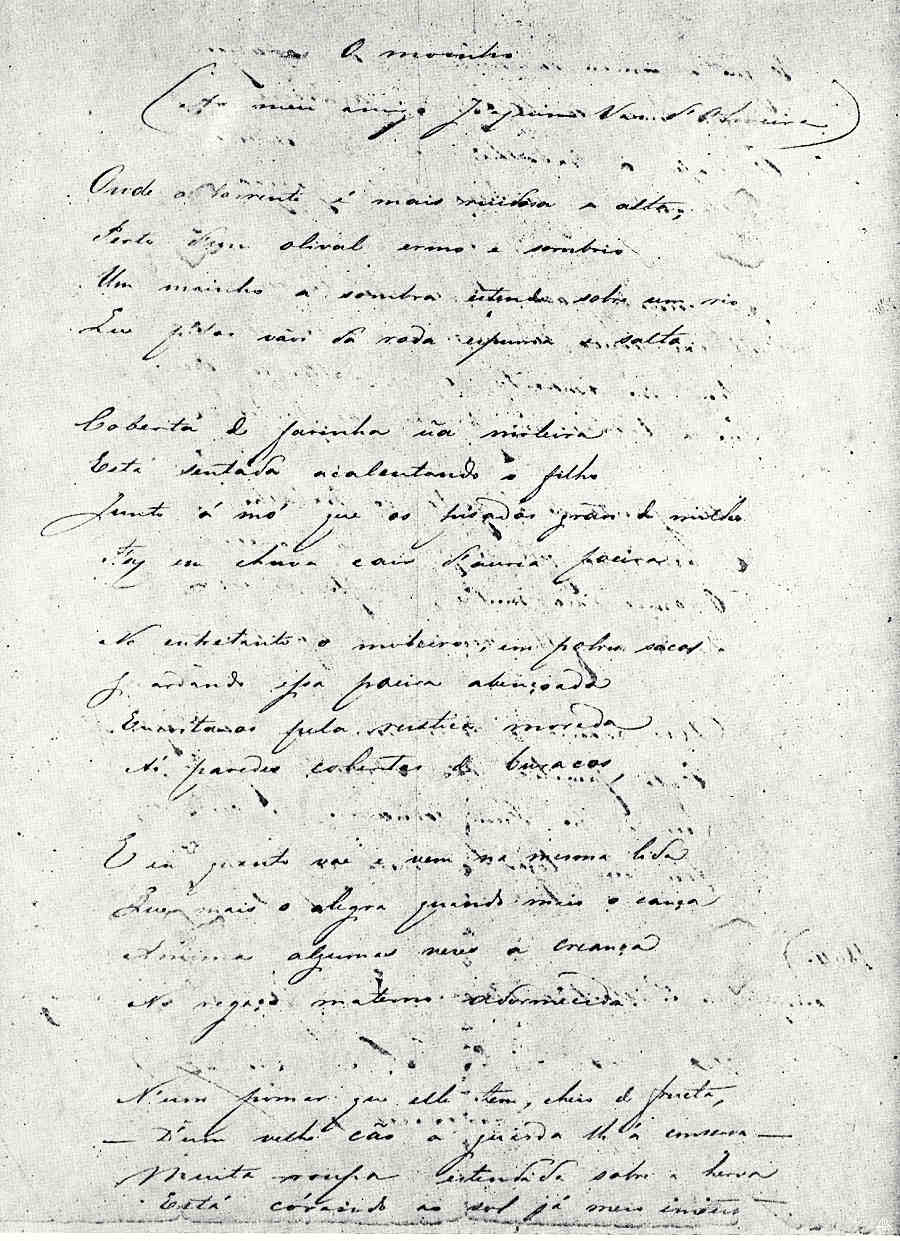 O moinho
(Ao meu amigo Joaquim Vaz d'Oliveira)
Onde a torrente é mais ruidosa e alta,
Perto d'um olival ermo e sombrio
Um moinho a sombra estende sobre um rio
Que p'los vãos da roda espuma e salta.
Coberta de farinha ũa moleira
Está sentada acalentando o filho
Junto á mó que os pisados grãos de milho
Faz em chuva cair d'aurea poeira.
No entretanto o moleiro, em pobres sacos
Guardando essa poeira abençoada
pela rustica morada
paredes cobertas de buracos,
E em quanto vae e vem na mesma lida
Que mais o alegra quando mais o cança
Anima algumas vezes a creança
No regaço materno adormecida.
N'um pomar que elle tem, cheio de fructa,
— D'um velho cão a guarda lh'a conserva —
Muita roupa estendida sobre a herva
Está córando ao sol já meio